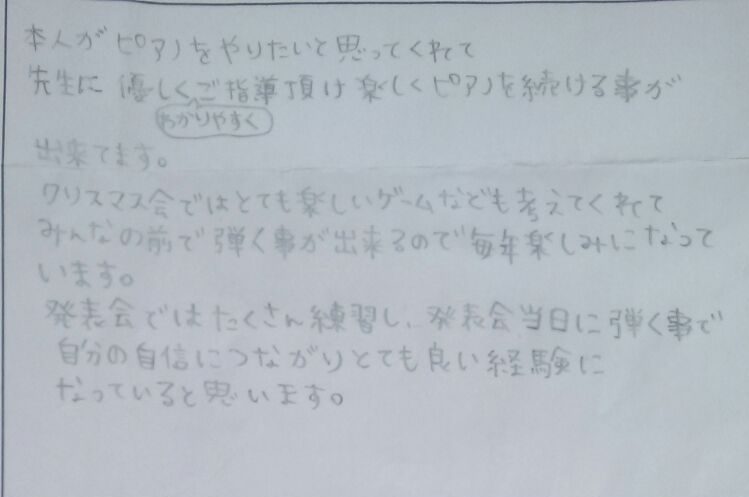 本人がピアノをやりたいと思ってくれてて
先生に優しくご指導頂け楽しくピアノを続ける事が
わかりやすく
出来てます。
クリスマス会ではとても楽しいゲームなども考えてくれてて
みんなの前で弾く事が出来るので毎年楽しみになって
います。
発表会ではたくさん練習し、発表会当日に弾く事で
自分の自信につながりとても良い経験に
なっていると思います。